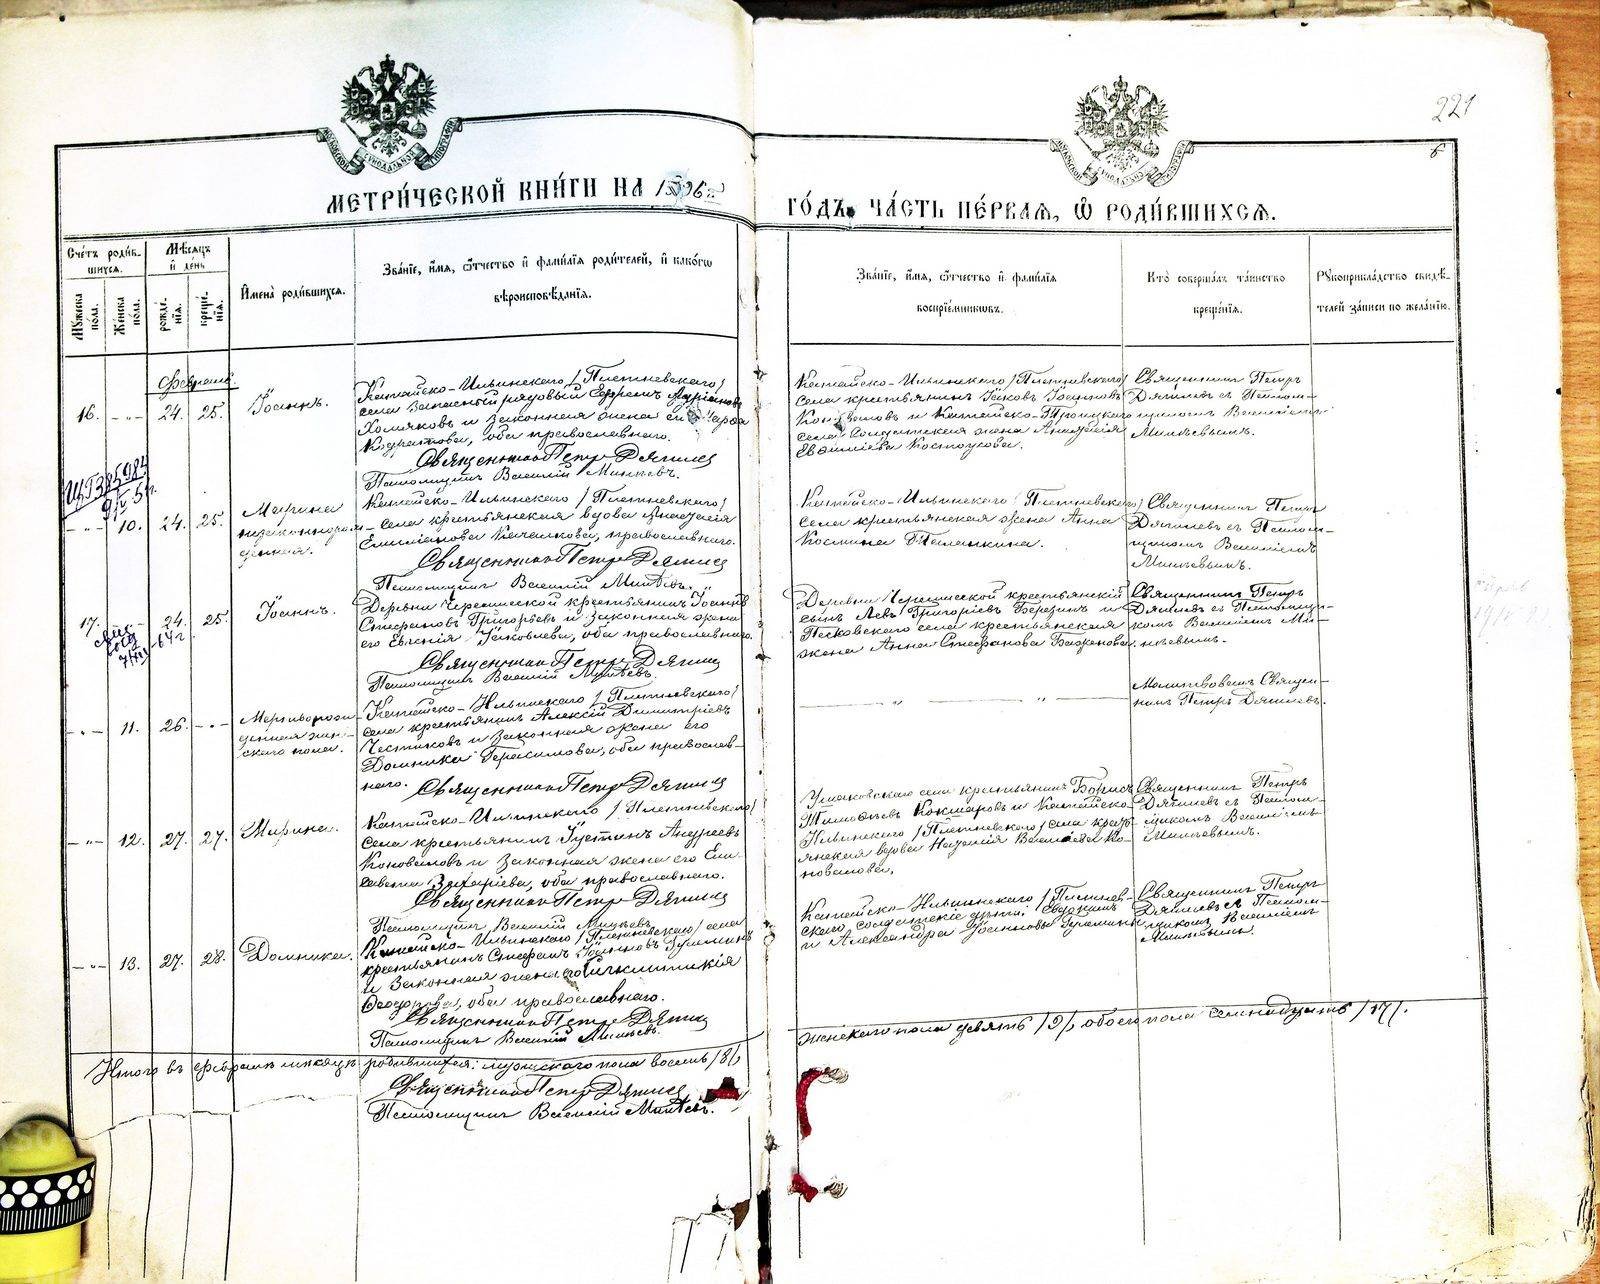 221
6
МОСКОВСКОЙ СУНОДАЛЬНОЙ ТИПОГРАФІИ
МЕТРИ́ЧЕСКОЙ КНИ́ГИ НА 1896й
ГО́ДЪ, ЧА́СТЬ ПЕ́РВАЯ, Ѽ РОДИ́ВШИХСЯ.
Сче́тъ роди́в-
шихся.
Мꙋжеска по́ла.
Же́нска по́ла.
Мѣ́сяцъ и҆ де́нь
рожде́нїя.
креще́нїя.
И҆мена̀ роди́вшихся.
Зва́нїе, и҆́мя, ѻ҆́тчество и҆ фами́лїя роди́телей, и҆ како́гѡ
вѣроисповѣ́данїя.
Зва́нїе, и҆́мя, ѻ҆́тчество и҆ фами́лїя
воспрїе́мникѡвъ.
Кто̀ соверша́лъ та́инство
креще́нїя.
Рꙋкоприкла́дство свидѣ́-
телей за́писи по жела́нїю.
Февраль.
16. - „ - 24. 25. Іоаннъ.
Катайско-Ильинскаго /Плетневскаго/
села запасный рядовый Ефремъ Адріановъ
Холияковъ и законная жена его
Кодратова, оба православнаго.
Священникъ Петръ Дягилев
Псаломщикъ Василій Минѣевъ.
Катайско-Ильинскаго /Плетневскаго/
села крестьянинъ Іаковъ Іоанновъ
Коноваловъ и Катайско-Троицкаго
села солдатская жена Анастасія
Евѳиміева Костоусова.
Священникъ Петръ
Дягилевъ съ Псалом-
щикомъ Василіемъ
Минѣевымъ.
- „ - 10. 24. 25. Марина
незаконнорож-
денная.
Катайско-Ильинскаго /Плетневскаго/
села крестьянская вдова Анастасія
Емиліанова Качалкова, православнаго.
Священникъ Петръ Дягилев
Псаломщикъ Василій Минѣевъ.
Катайско-Ильинскаго /Плетневскаго/
села крестьянская жена Анна
Космина Паланкина.
Священникъ Петръ
Дягилевъ съ Псалом-
щикомъ Василіемъ
Минѣевымъ.
17. - „ - 24. 25. Іоаннъ.
Деревни Черемисской крестьянинъ Іоаннъ
Стефановъ Григорьевъ и законная жена
его Евгенія Іаковлева, оба православнаго.
Священникъ Петръ Дягилев
Псаломщикъ Василій Минѣевъ.
Деревни Черемисской крестьянскій
сынъ Левъ Григоріевъ Березинъ и
Песковскаго села крестьянская
жена Анна Стефанова Баженова
Священникъ Петръ
Дягилевъ съ Псаломщи-
комъ Василіемъ Ми-
нѣевымъ.
- „ - 11. 26. - „ - Мертворож-
денная жен-
скаго пола.
Катайско-Ильинскаго /Плетневскаго/
села крестьянинъ Алексій Димитріевъ
Чистяковъ и законная жена его
Домника Герасимова, оба православ-
наго. Священникъ Петръ Дягилев
„ „
Молитвовалъ Священ-
никъ Петръ Дягилевъ.
- „ - 12. 27. 27. Марина.
Катайско-Ильинскаго /Плетневскаго/
села крестьянинъ Іустинъ Андреевъ
Коноваловъ и законная жена его Ели-
савета Захаріева, оба православнаго.
Священникъ Петръ Дягилев
Псаломщикъ Василій Минѣевъ
Ушаковскаго села крестьянинъ Борисъ
Тимоѳеевъ Кокшаровъ и Катайско-
Ильинскаго /Плетневскаго/ села кресть-
янская вдова Наталія Василіева Ко-
новалова.
Священникъ Петръ
Дягилевъ съ Псалом-
щикомъ Василіемъ
Минѣевымъ.
- „ - 13. 27. 28. Домника.
Катайско-Ильинскаго /Плетневскаго/ села
крестьянинъ Стефанъ Іоанновъ
и законная жена его
Ѳеодорова, оба православнаго.
Священникъ Петръ Дягилев
Псаломщикъ Василій Минѣевъ.
Катайско-Ильинскаго /Плетнев-
скаго солдатскіе дѣти: Евдокимъ
и Александра Іоанновы
Священникъ Петръ
Дягилевъ съ Псалом-
щикомъ Василіемъ
Минѣевымъ.
Итого въ февралѣ мѣсяцѣ родившихся: мужскаго пола восемь /8/,
женскаго пола девять /9/, обоего пола семнадцать /17/.
Священникъ Петръ Дягилев
Псаломщикъ Василій Минѣевъ.